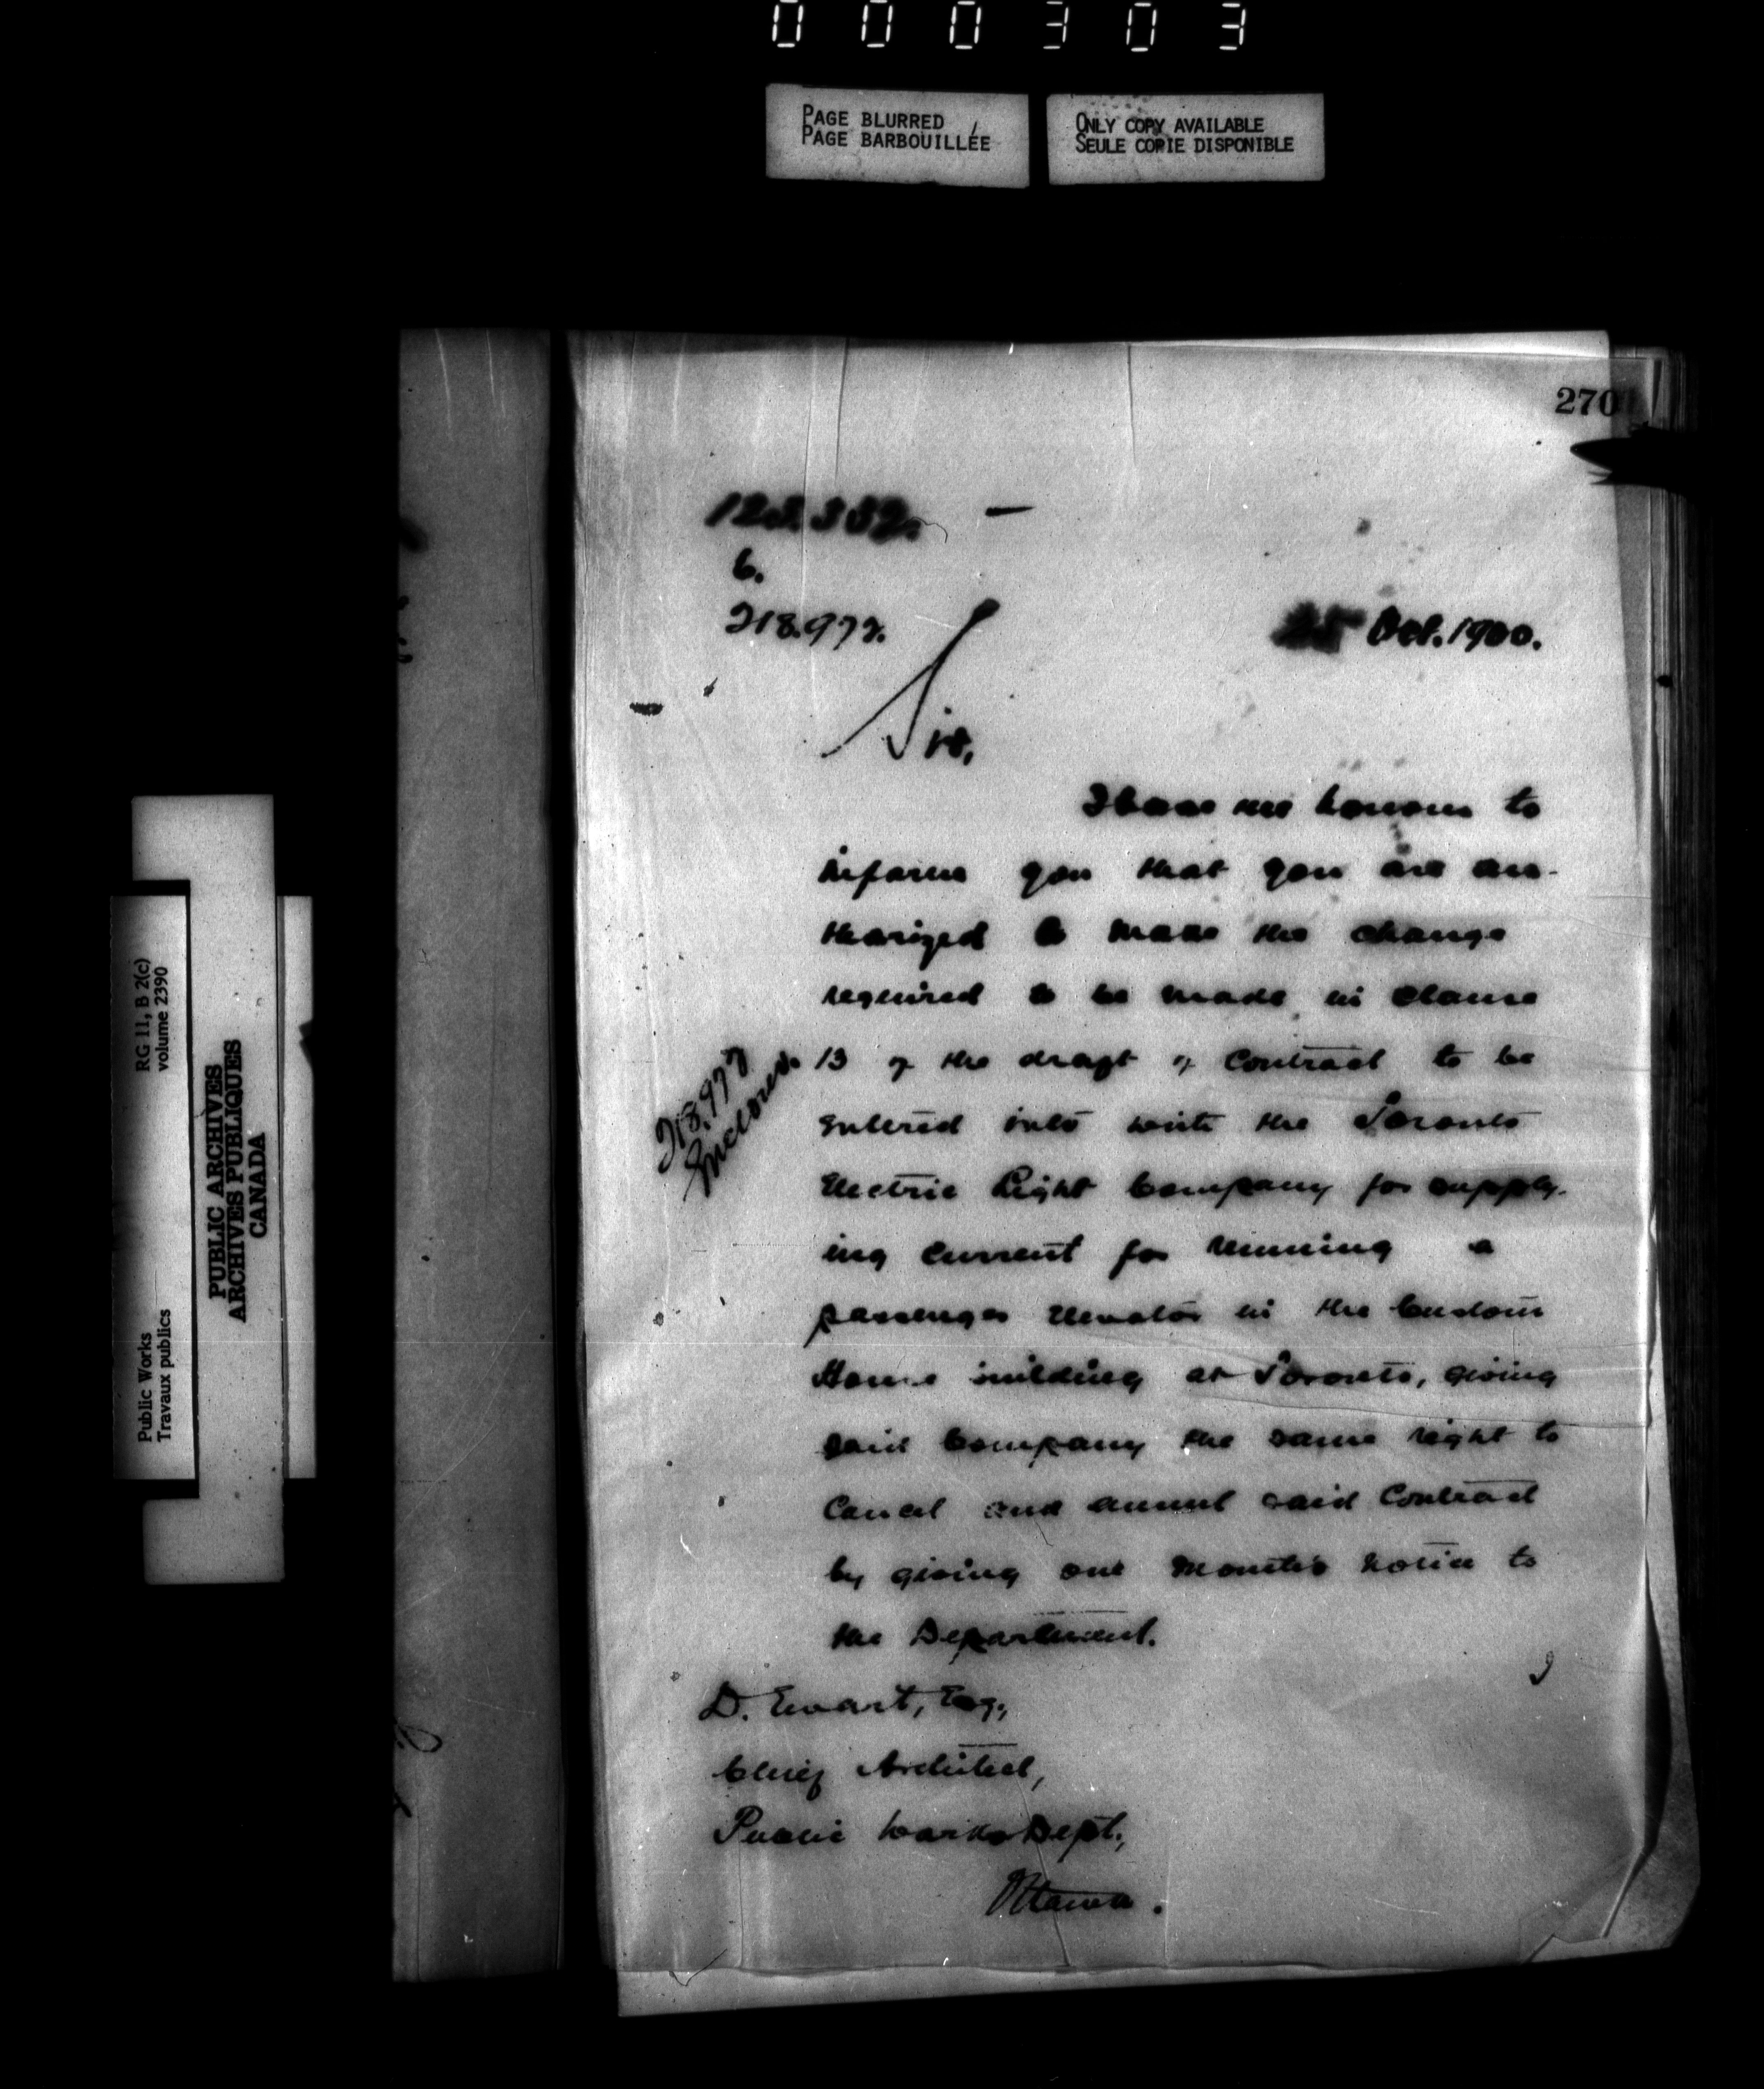 000303
PAGE BLURRED
PAGE BARBOUILLÉE
ONLY COPY AVAILABLE
SEULE COPIE DISPONIBLE
RG 11, B 2(c)
volume 2390
PUBLIC ARCHIVES
ARCHIVES PUBLIQUES
CANADA
Public Works
Travaux publics
270
6.
218.972.
Oct. 1900.
Sir,
I have the honour to
inform you that you are au-
thorized to make the change
required to be made in clause
13 of the draft of Contract to be
entered into with the Toronto
Electric Light Company for supply-
ing current for running a
passenger elevator in the Custom
House building at Toronto, giving
said Company the same right to
Cancel and annul said Contract
by giving one month's notice to
the Department.
218.972
Enclosed.
D. Ewart, Esq.,
Chief Architect,
Public Works Dept.,
Ottawa.